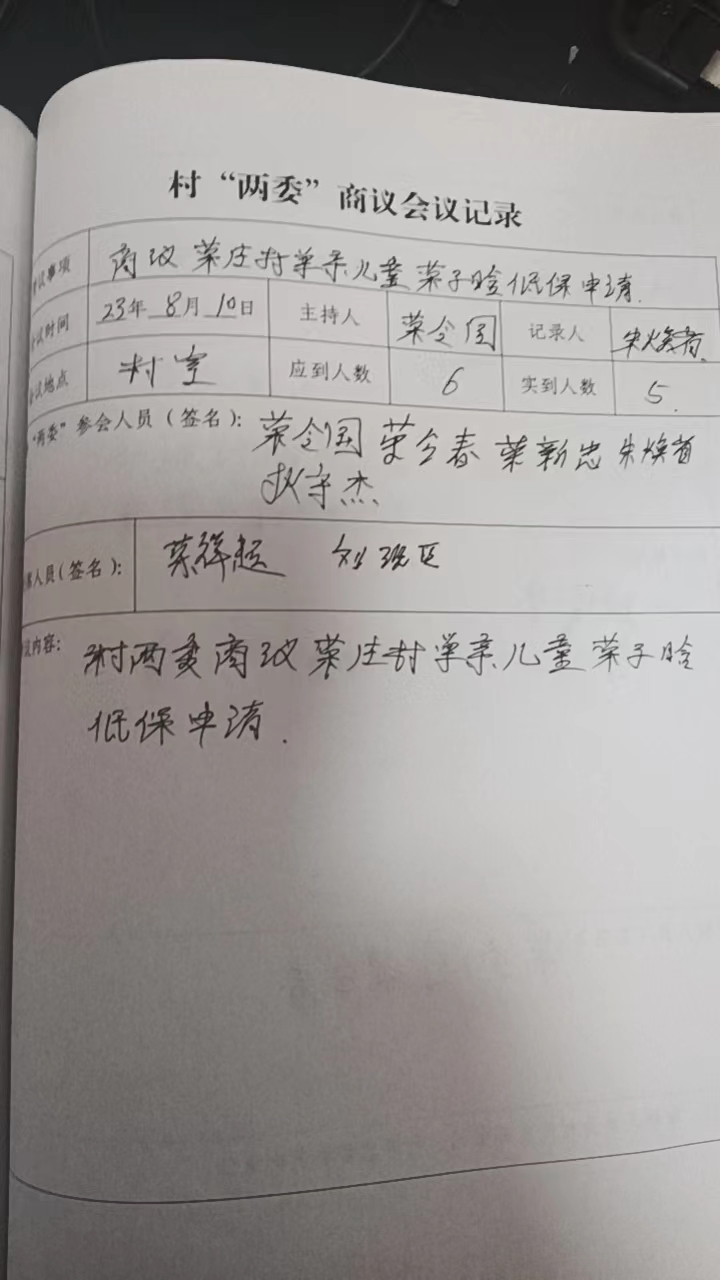 村“两委”商议会议记录
议事项 商议荣庄村单亲儿童荣子晗低保申请.
议时间 23年 8月 10日 主持人 荣令国 记录人 朱焕
议地点 村室 应到人数 6 实到人数 5.
“两委”参会人员(签名): 荣令国 荣令春 荣新忠 朱焕
守杰
人员(签名): 荣祥 刘现
内容: 村两委商议荣庄村单亲儿童荣子晗
低保申请.